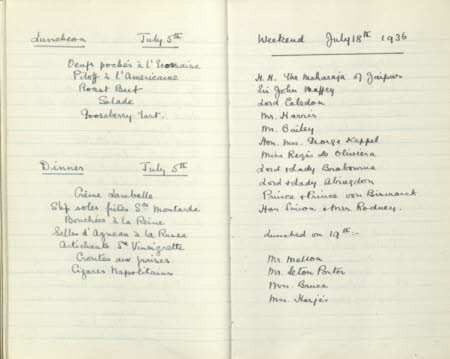 Luncheon July 5th
Oeufs pochés à l'Ecossaise
Piloff à l'Americaine
Roast Beef
Salade
Gooseberry tart.
Dinner July 5th
Crême Lamballe
Slip soles frites Sce Montarde
Bouchées à la Reine
Selles d'Agneau à la Russe
Artichauts Sce Vinaigrette
Croutes aux fraises
Cigares Napolitains
Weekend July 18th 1936
H.H. The Maharaja of Jaipur
Sir John Maffey
Lord Caledon
Mr. Harris
Mr. Bailey
Hon. Mrs. George Keppel
Miss Regis de Oliviera
Lord & Lady Brabourne
Lord & Lady Abingdon
Prince & Prince von Bismarck
Hon Simon & Mrs. Rodney.
Lunched on 19th:-
Mr. Mellon
Mr. Seton Porter
Mrs. Bruce
Mrs. Harjes